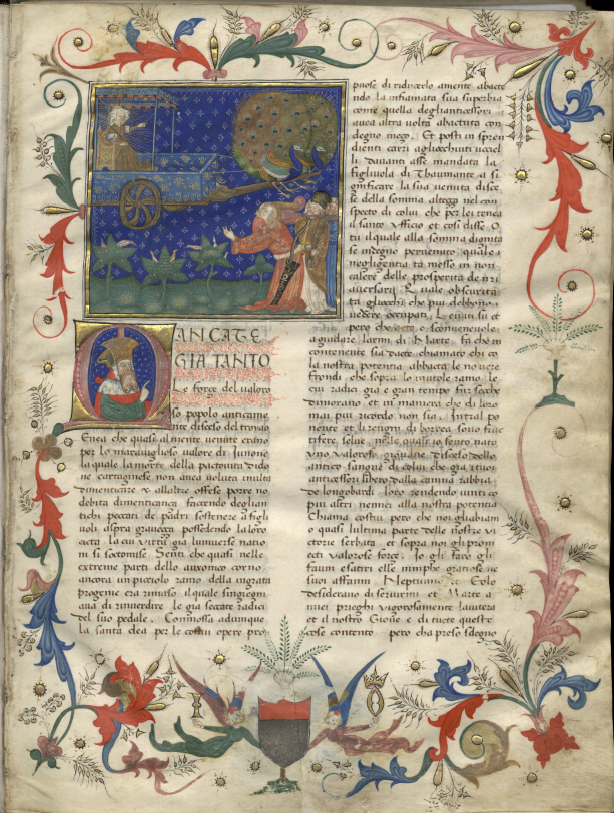 MANCATE
GIA TANTO
Le force del valoro
so popolo anticame
nte disceso del troyano
Enea che quasi al niente venute erano
per lo maraviglioso valore di Junone
la quale la morte della pactovita dido
ne cartagnese non avea voluta inulta
dimenticare & allaltre offese porre no
debita dimenticanca faccendo deglian
tichi peccati de padri sostenere a figli
uoli aspra gravecca possedendo la loro
cicta la cui virtu gia luniverse natio
ni si sottomise Senti che quasi nelle
extreme parti dello auxonico corno
ancora un picciolo ramo della ingrata
progenie era rimaso il quale singegni
ava di rinverdire le gia seccate radici
del suo pedale Commossa adunque
la santa dea per le costui opere pro
puose di riducerlo a niente abacte
ndo la infiamata sua superbia
come quella degliantiscessori
avea altra volta abactuta con
degno mego Et posti in spren
dienti carri agliocchiuti uccel
li davanti asse mandata la
figliuola di Thaumante a si
gnificare la sua venuta disce
se della somma altegga nel con
specto di colui che per lei tenea
il santo ufficio et cosi disse O
tu il quale alla somma dignita
se indegno pervenuto quale
negligentia ta mosso in non
calere delle prosperita de nri
aversarii Quale obscurita
ta gliocchi che piu debbono
vedere occupati Levati su et
pero che a te e sconvenevole
a guidare larmi di Marte fa che in
contenente sia da te chiamato chi co
la nostra potentia abbacta le novere
frondi che sopra lo inutole ramo le
cui radici gia e gran tempo fur secche
dimorano et in maniera che di loro
mai piu ricordo non sia Intral po
nente et li regni di borrea sono fruc
tifere selve nelle quali io sento nato
uno valoroso giovane disceso dello
antico sangue di colui che gia i tuoi
antiscessori libero dalla canina rabbia
de longobardi loro rendendo vinti co
piu altri nemici alla nostra potentia
Chiama costui pero che noi gliabiam
o quasi lultima parte delle nostre vi
ctorie serbata et sopra noi gli prom
ecti valorose force Io gli faro gli
satiri elle nimphe gratiose ne
suoi affanni Neptunno et Eolo
desiderano di servirmi et Marte a
miei prieghi vigorosamente lautera
et il nostro Giove e di tucte queste
cose contento pero cha preso sdegno